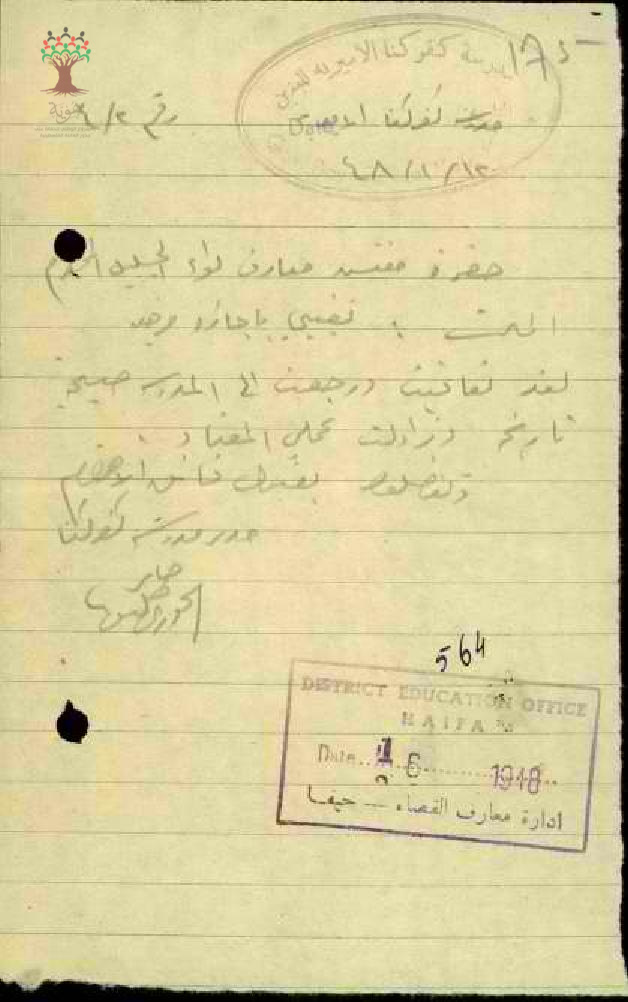 مدرسة كفر كنا الاميرية للبنين
١٧٥
مدرسة كفركنا الاميرية
رقم ٤/٢
Date
٤٨/١/١٢
حضرة مفتش معارف لواء الجليل المحترم
تغيبي باجازة مرضية
لقد تعافيت ورجعت الى المدرسة صبيحة
تاريخه وزاولت عملي المعتاد .
وتفضلوا بقبول فائق الاحترام
مدير مدرسة كفركنا
صابر
الخوري
564
DISTRICT EDUCATION OFFICE
HAIFA
Date 1 6 1948
ادارة معارف القضاء — حيفا